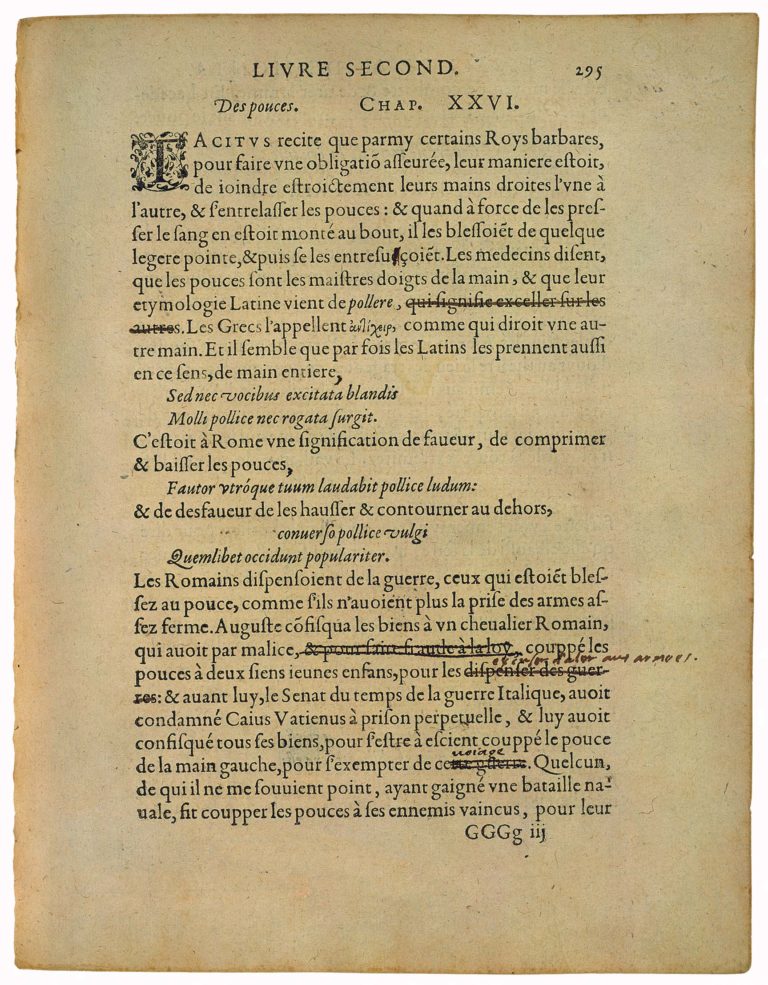 LIVRE SECOND. 295
Des pouces. CHAP. XXVI.
TACITVS recite que parmy certains Roys barbares,
pour faire vne obligatiõ aſſeurée, leur maniere eſtoit,
de ioindre eſtroictement leurs mains droites l'vne à
l'autre, & s'entrelaſſer les pouces : & quand à force de les preſ-
ſer le ſang en eſtoit monté au bout, il les bleſſoiẽt de quelque
legere pointe, & puis ſe les entreſuçoiẽt. Les medecins diſent,
que les pouces ſont les maiſtres doigts de la main, & que leur
etymologie Latine vient de pollere, qui ſignifie exceller ſur les
autres. Les Grecs l'appellent ἀντίχειρ, comme qui diroit vne au-
tre main. Et il ſemble que par fois les Latins les prennent auſſi
en ce ſens, de main entiere,
Sed nec vocibus excitata blandis
Molli pollice nec rogata ſurgit.
C'eſtoit à Rome vne ſignification de faueur, de comprimer
& baiſſer les pouces,
Fautor vtróque tuum laudabit pollice ludum:
& de desfaueur de les hauſſer & contourner au dehors,
conuerſo pollice vulgi
Quemlibet occidunt populariter.
Les Romains diſpenſoient de la guerre, ceux qui eſtoiẽt bleſ-
ſez au pouce, comme s'ils n'auoient plus la priſe des armes aſ-
ſez ferme. Auguſte cõfiſqua les biens à vn cheualier Romain,
qui auoit par malice, & pour faire fraude à la loy, couppé les
excuser d'aler aus armees.
pouces à deux ſiens ieunes enfans, pour les diſpenſer des guer-
res: & auant luy, le Senat du temps de la guerre Italique, auoit
condamné Caius Vatienus à priſon perpetuelle, & luy auoit
confiſqué tous ſes biens, pour s'eſtre à eſcient couppé le pouce
voiage
de la main gauche, pour s'exempter de cete guerre. Quelcun,
de qui il ne me ſouuient point, ayant gaigné vne bataille na-
uale, fit coupper les pouces à ſes ennemis vaincus, pour leur
GGGg iij